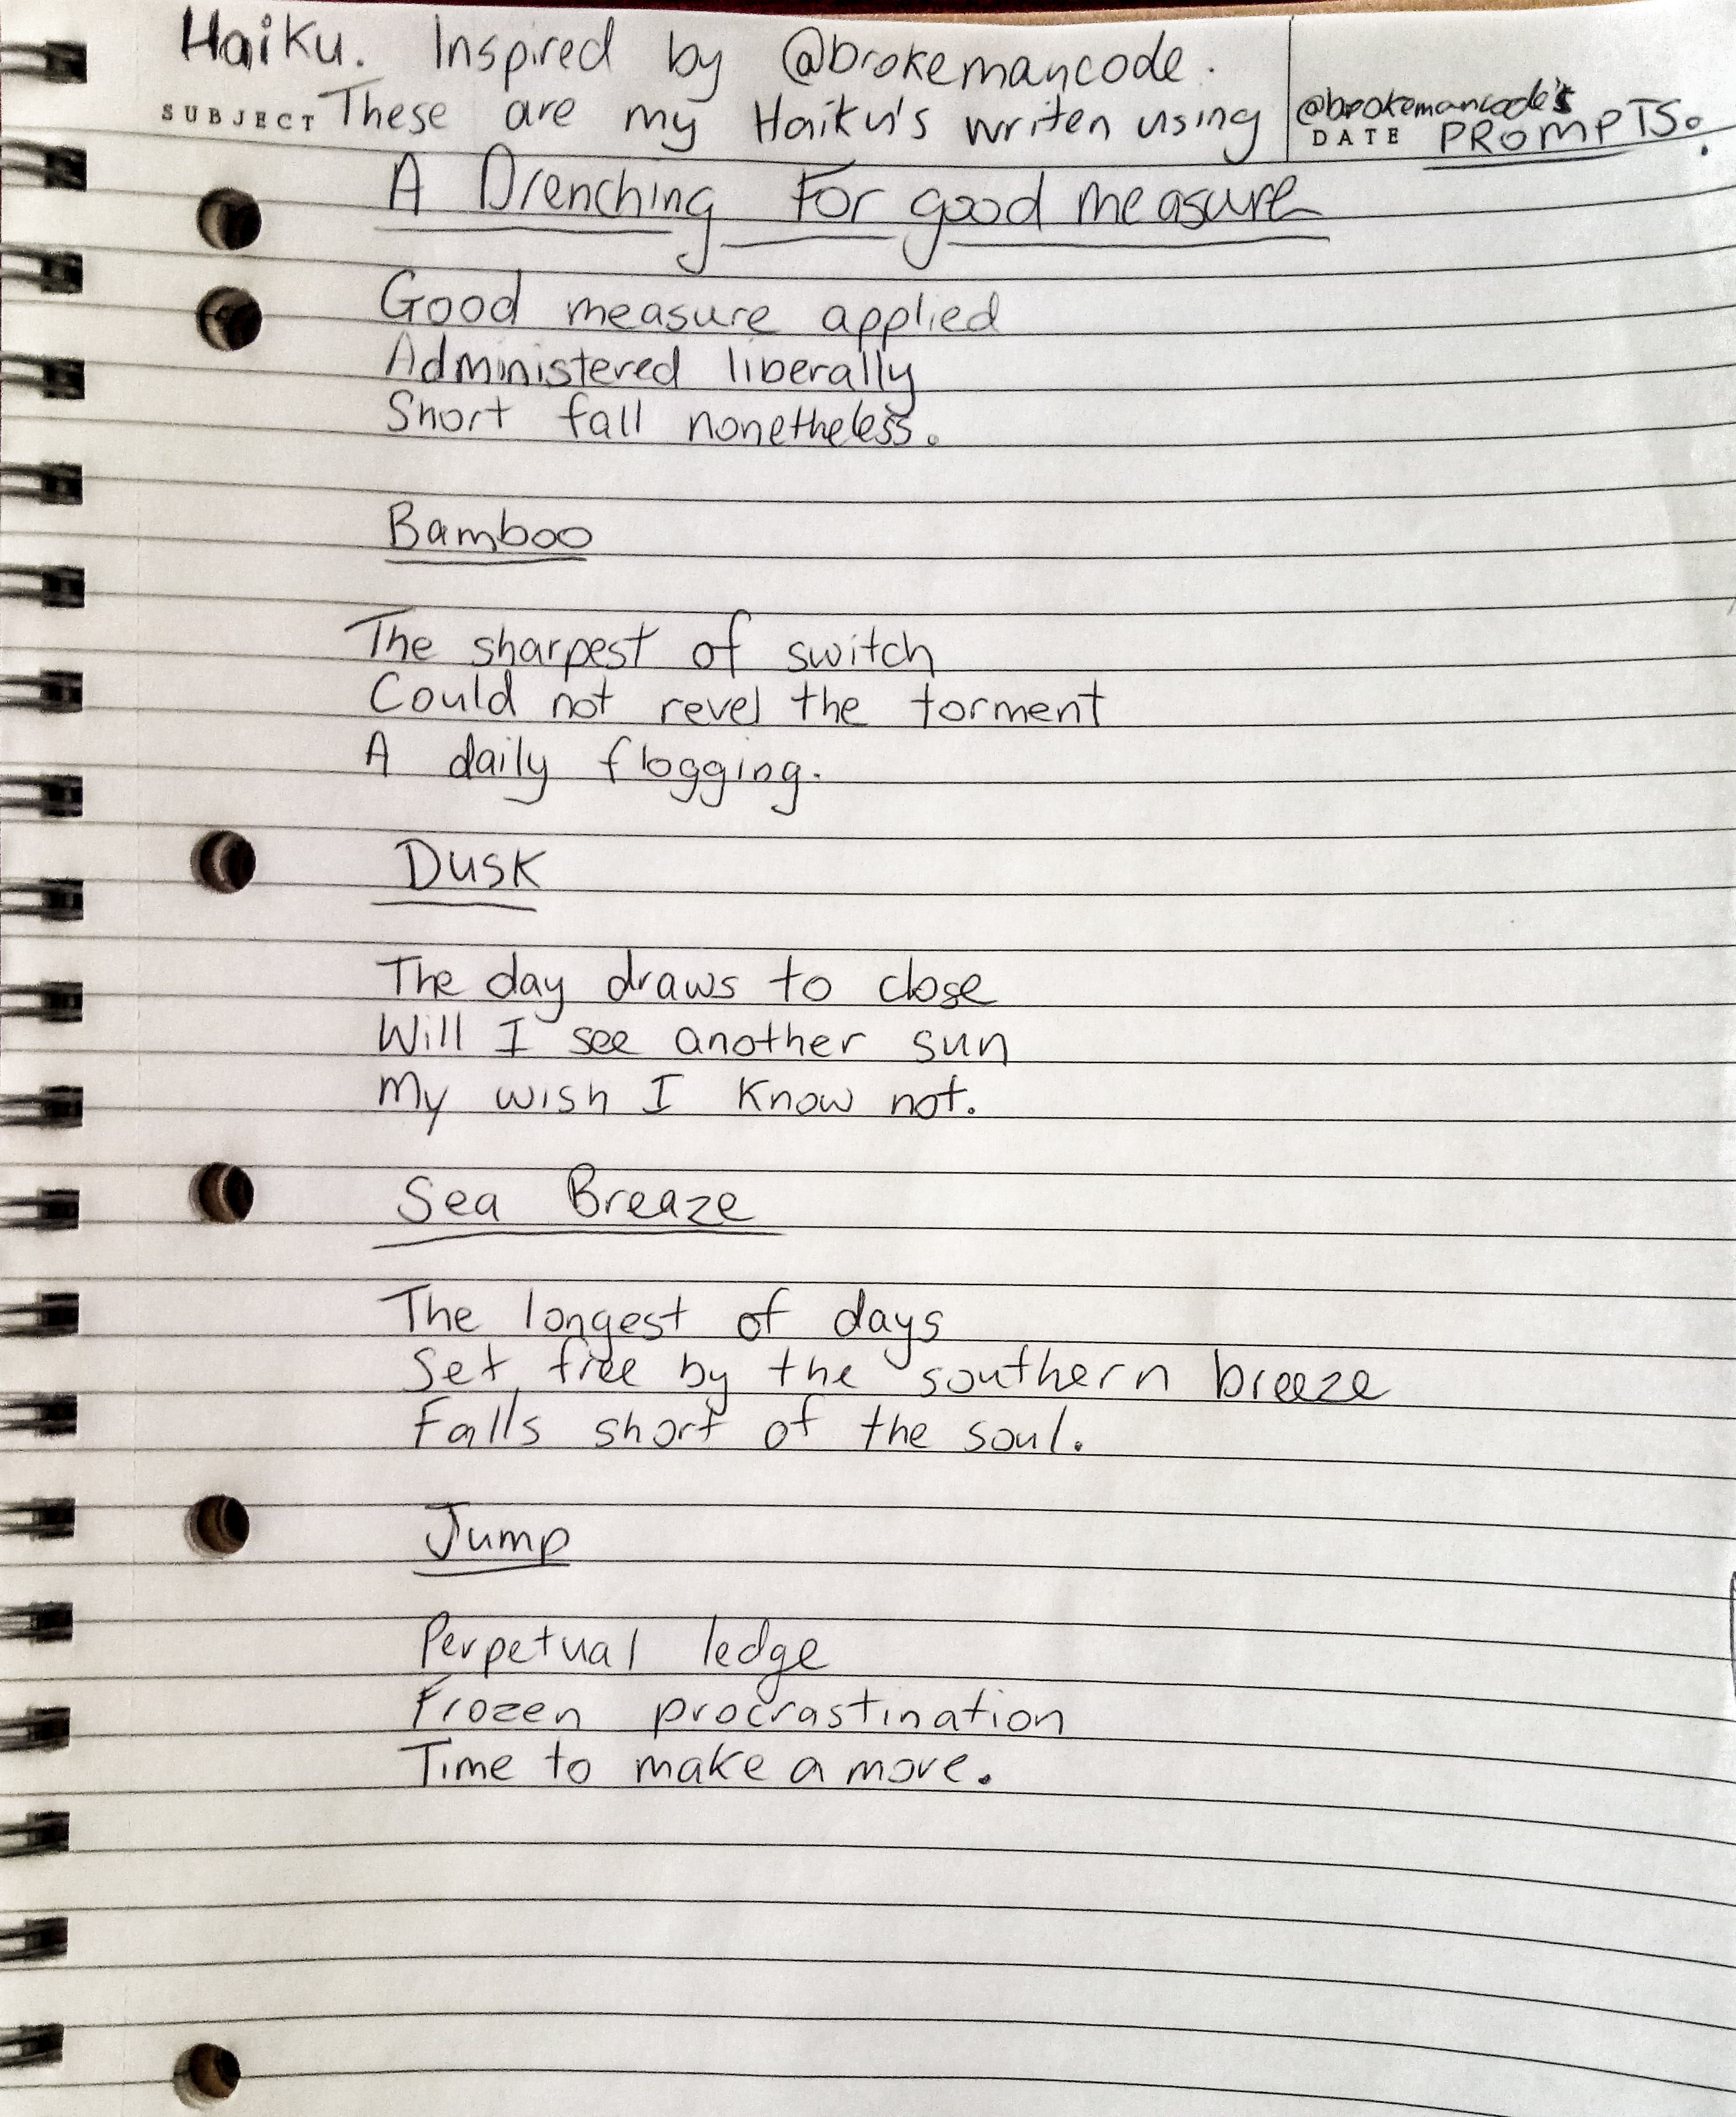 Haiku. Inspired by @brokemancode.
SUBJECT These are my Haiku's writen using @brokemancode's
DATE PROMPTS.
A Drenching For good measure
Good measure applied
Administered liberally
Short fall nonetheless.
Bamboo
The sharpest of switch
Could not revel the torment
A daily flogging.
Dusk
The day draws to close
Will I see another sun
My wish I know not.
Sea Breaze
The longest of days
Set free by the southern breeze
Falls short of the soul.
Jump
Perpetual ledge
Frozen procrastination
Time to make a move.